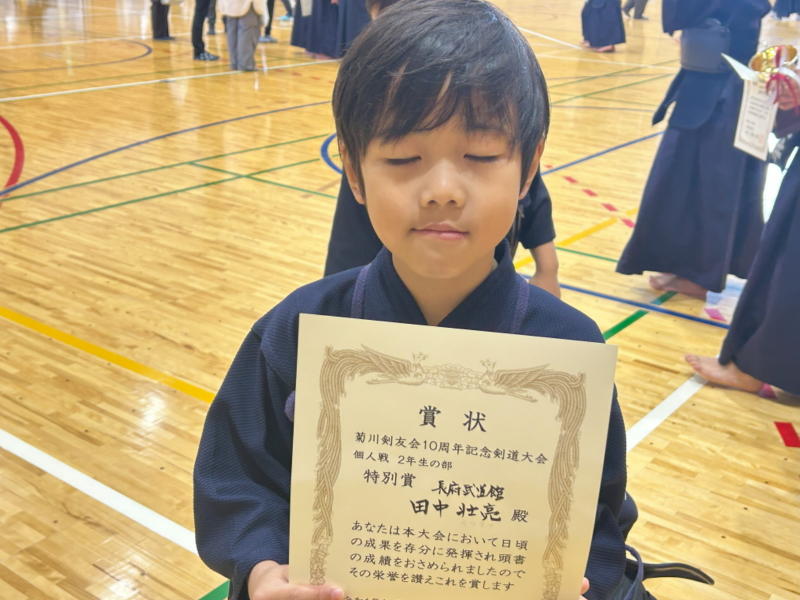 賞状
菊川剣友会10周年記念剣道大会
個人戦 2年生の部
特別賞 長府武道館
田中壮亮 殿
あなたは本大会において日頃
の成果を存分に発揮され頭書
の成績をおさめられましたので
その栄誉を讃えこれを賞します